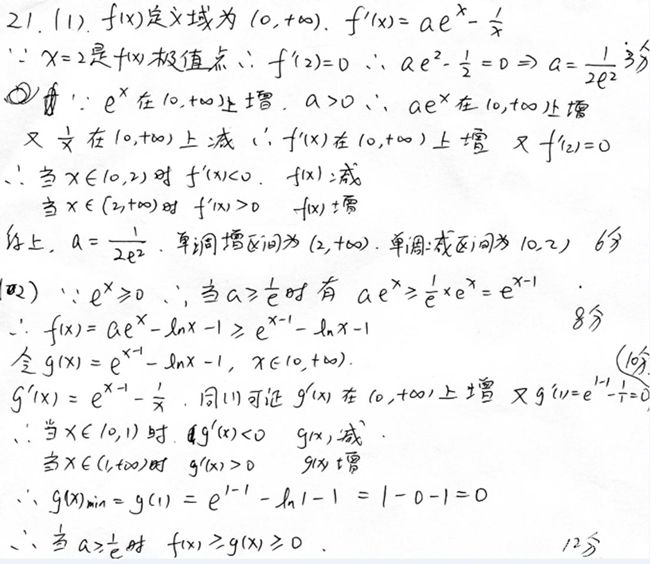 21. (1). f(x)定义域为 (0,+∞). f'(x)= ae^x - 1/x
∵ x=2是f(x)极值点 ∴ f'(2)=0 ∴ ae^2 - 1/2 = 0 ⇒ a = 1/(2e^2) 3分
∵ e^x 在(0,+∞)上增. a>0 ∴ ae^x 在(0,+∞)上增
又 1/x 在(0,+∞)上减 ∴ f'(x)在(0,+∞)上增 又 f'(2)=0
∴ 当 x∈(0,2)时 f'(x)<0. f(x)减
当 x∈(2,+∞)时 f'(x)>0 f(x)增
综上, a = 1/(2e^2). 单调增区间为(2,+∞). 单调减区间为(0,2) 6分
(2) ∵ e^x ≥0 ∴ 当 a≥1/e 时 有 ae^x ≥ 1/e × e^x = e^(x-1)
∴ f(x)= ae^x - lnx - 1 ≥ e^(x-1) - lnx - 1 8分
令 g(x)= e^(x-1) - lnx - 1, x∈(0,+∞). (10分
g'(x)= e^(x-1) - 1/x . 同(1)可证 g'(x)在(0,+∞)上增 又 g'(1)= e^(1-1) - 1/1 = 0
∴ 当 x∈(0,1)时. g'(x)<0 g(x)减.
当 x∈(1,+∞)时 g'(x)>0 g(x)增
∴ g(x)min = g(1) = e^(1-1) - ln1 - 1 = 1-0-1=0
∴ 当 a≥1/e 时 f(x) ≥ g(x) ≥ 0 . 12分